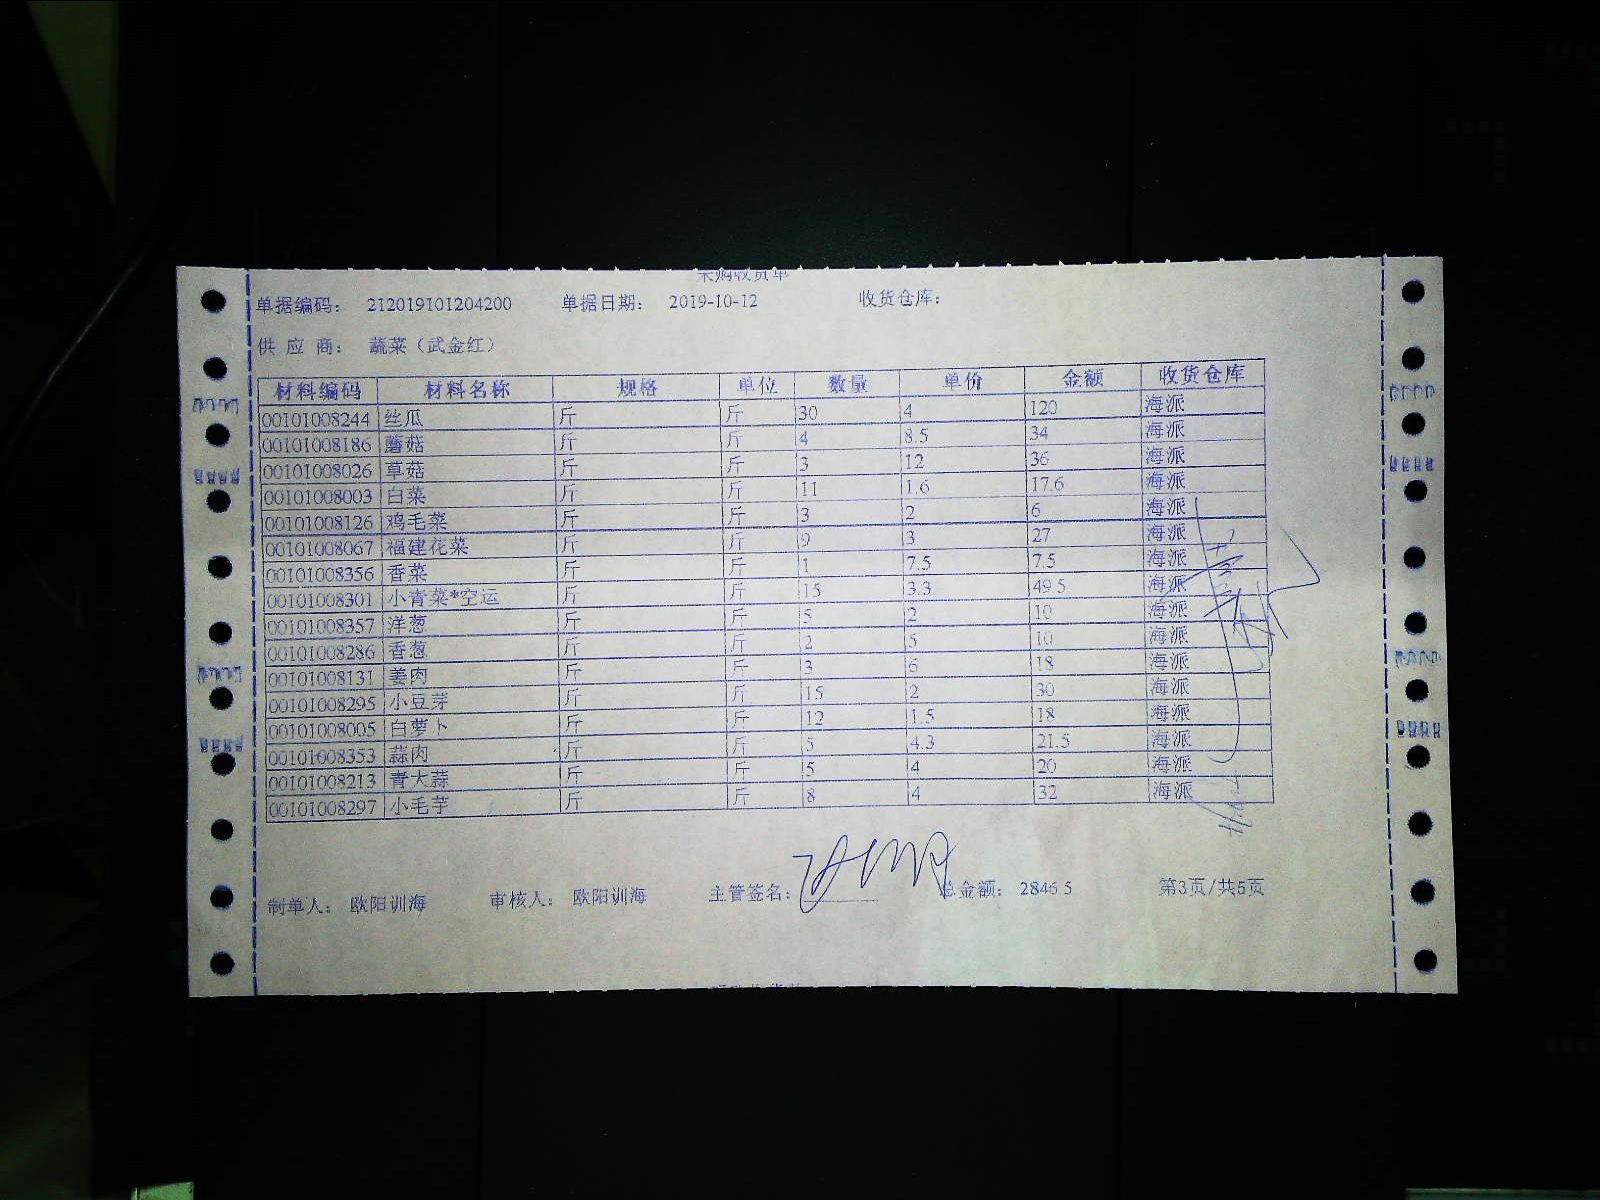 采购收货单
单据编码： 212019101204200 单据日期： 2019-10-12 收货仓库：
供 应 商： 蔬菜（武金红）
材料编码 材料名称 规格 单位 数量 单价 金额 收货仓库
00101008244 丝瓜 斤 斤 30 4 120 海派
00101008186 蘑菇 斤 斤 4 8.5 34 海派
00101008026 草菇 斤 斤 3 12 36 海派
00101008003 白菜 斤 斤 11 1.6 17.6 海派
00101008126 鸡毛菜 斤 斤 3 2 6 海派
00101008067 福建花菜 斤 斤 9 3 27 海派
00101008356 香菜 斤 斤 1 7.5 7.5 海派
00101008301 小青菜*空运 斤 斤 15 3.3 49.5 海派
00101008357 洋葱 斤 斤 5 2 10 海派
00101008286 香葱 斤 斤 2 5 10 海派
00101008131 姜肉 斤 斤 3 6 18 海派
00101008295 小豆芽 斤 斤 15 2 30 海派
00101008005 白萝卜 斤 斤 12 1.5 18 海派
00101008353 蒜肉 斤 斤 5 4.3 21.5 海派
00101008213 青大蒜 斤 斤 5 4 20 海派
00101008297 小毛芋 斤 斤 8 4 32 海派
制单人： 欧阳训海 审核人： 欧阳训海 主管签名： 总金额： 2846.5 第3页/共5页